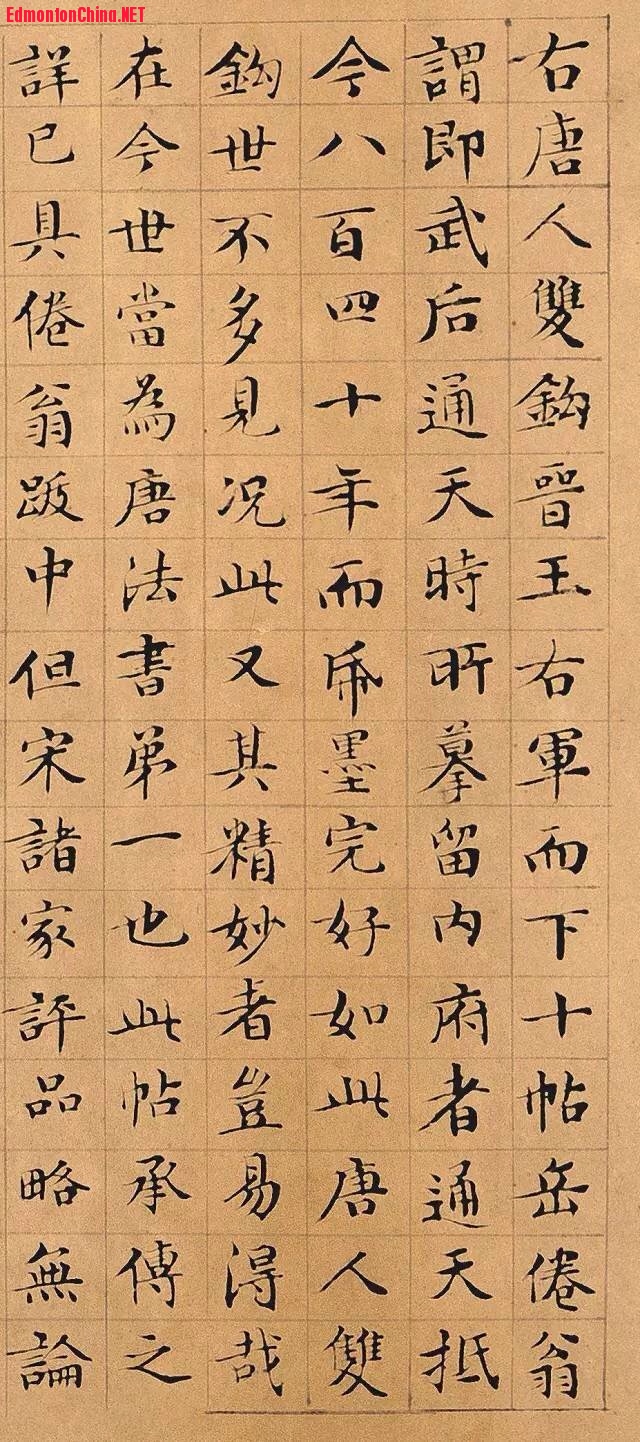 EdmontonChina.NET
右唐人雙鈎晉王右軍而下十帖岳倦翁
謂即武后通天時所摹留內府者通天抵
今八百四十年而紙墨完好如此唐人雙
鈎世不多見况此又其精妙者豈易得哉
在今世當為唐法書第一也此帖承傳之
詳已具倦翁跋中但宋諸家評品略無論